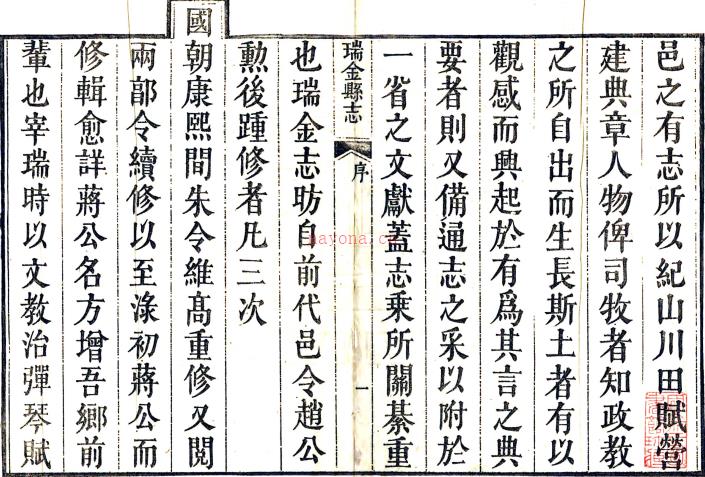 邑之有志所以紀山川田賦營
建典章人物俾司牧者知政教
之所自出而生長斯土者有以
觀感而興起於有爲其言之典
要者則又備通志之采以附於
一省之文獻蓋志乘所關綦重
瑞金縣志
序
一
也瑞金志昉自前代邑令趙公
勲後踵修者凡三次
國朝康熙間朱令維高重修又閱
兩郭令續修以至淥初蔣公而
修輯愈詳蔣公名方增吾鄉前
輩也宰瑞時以文教治彈琴賦
nayona.cn